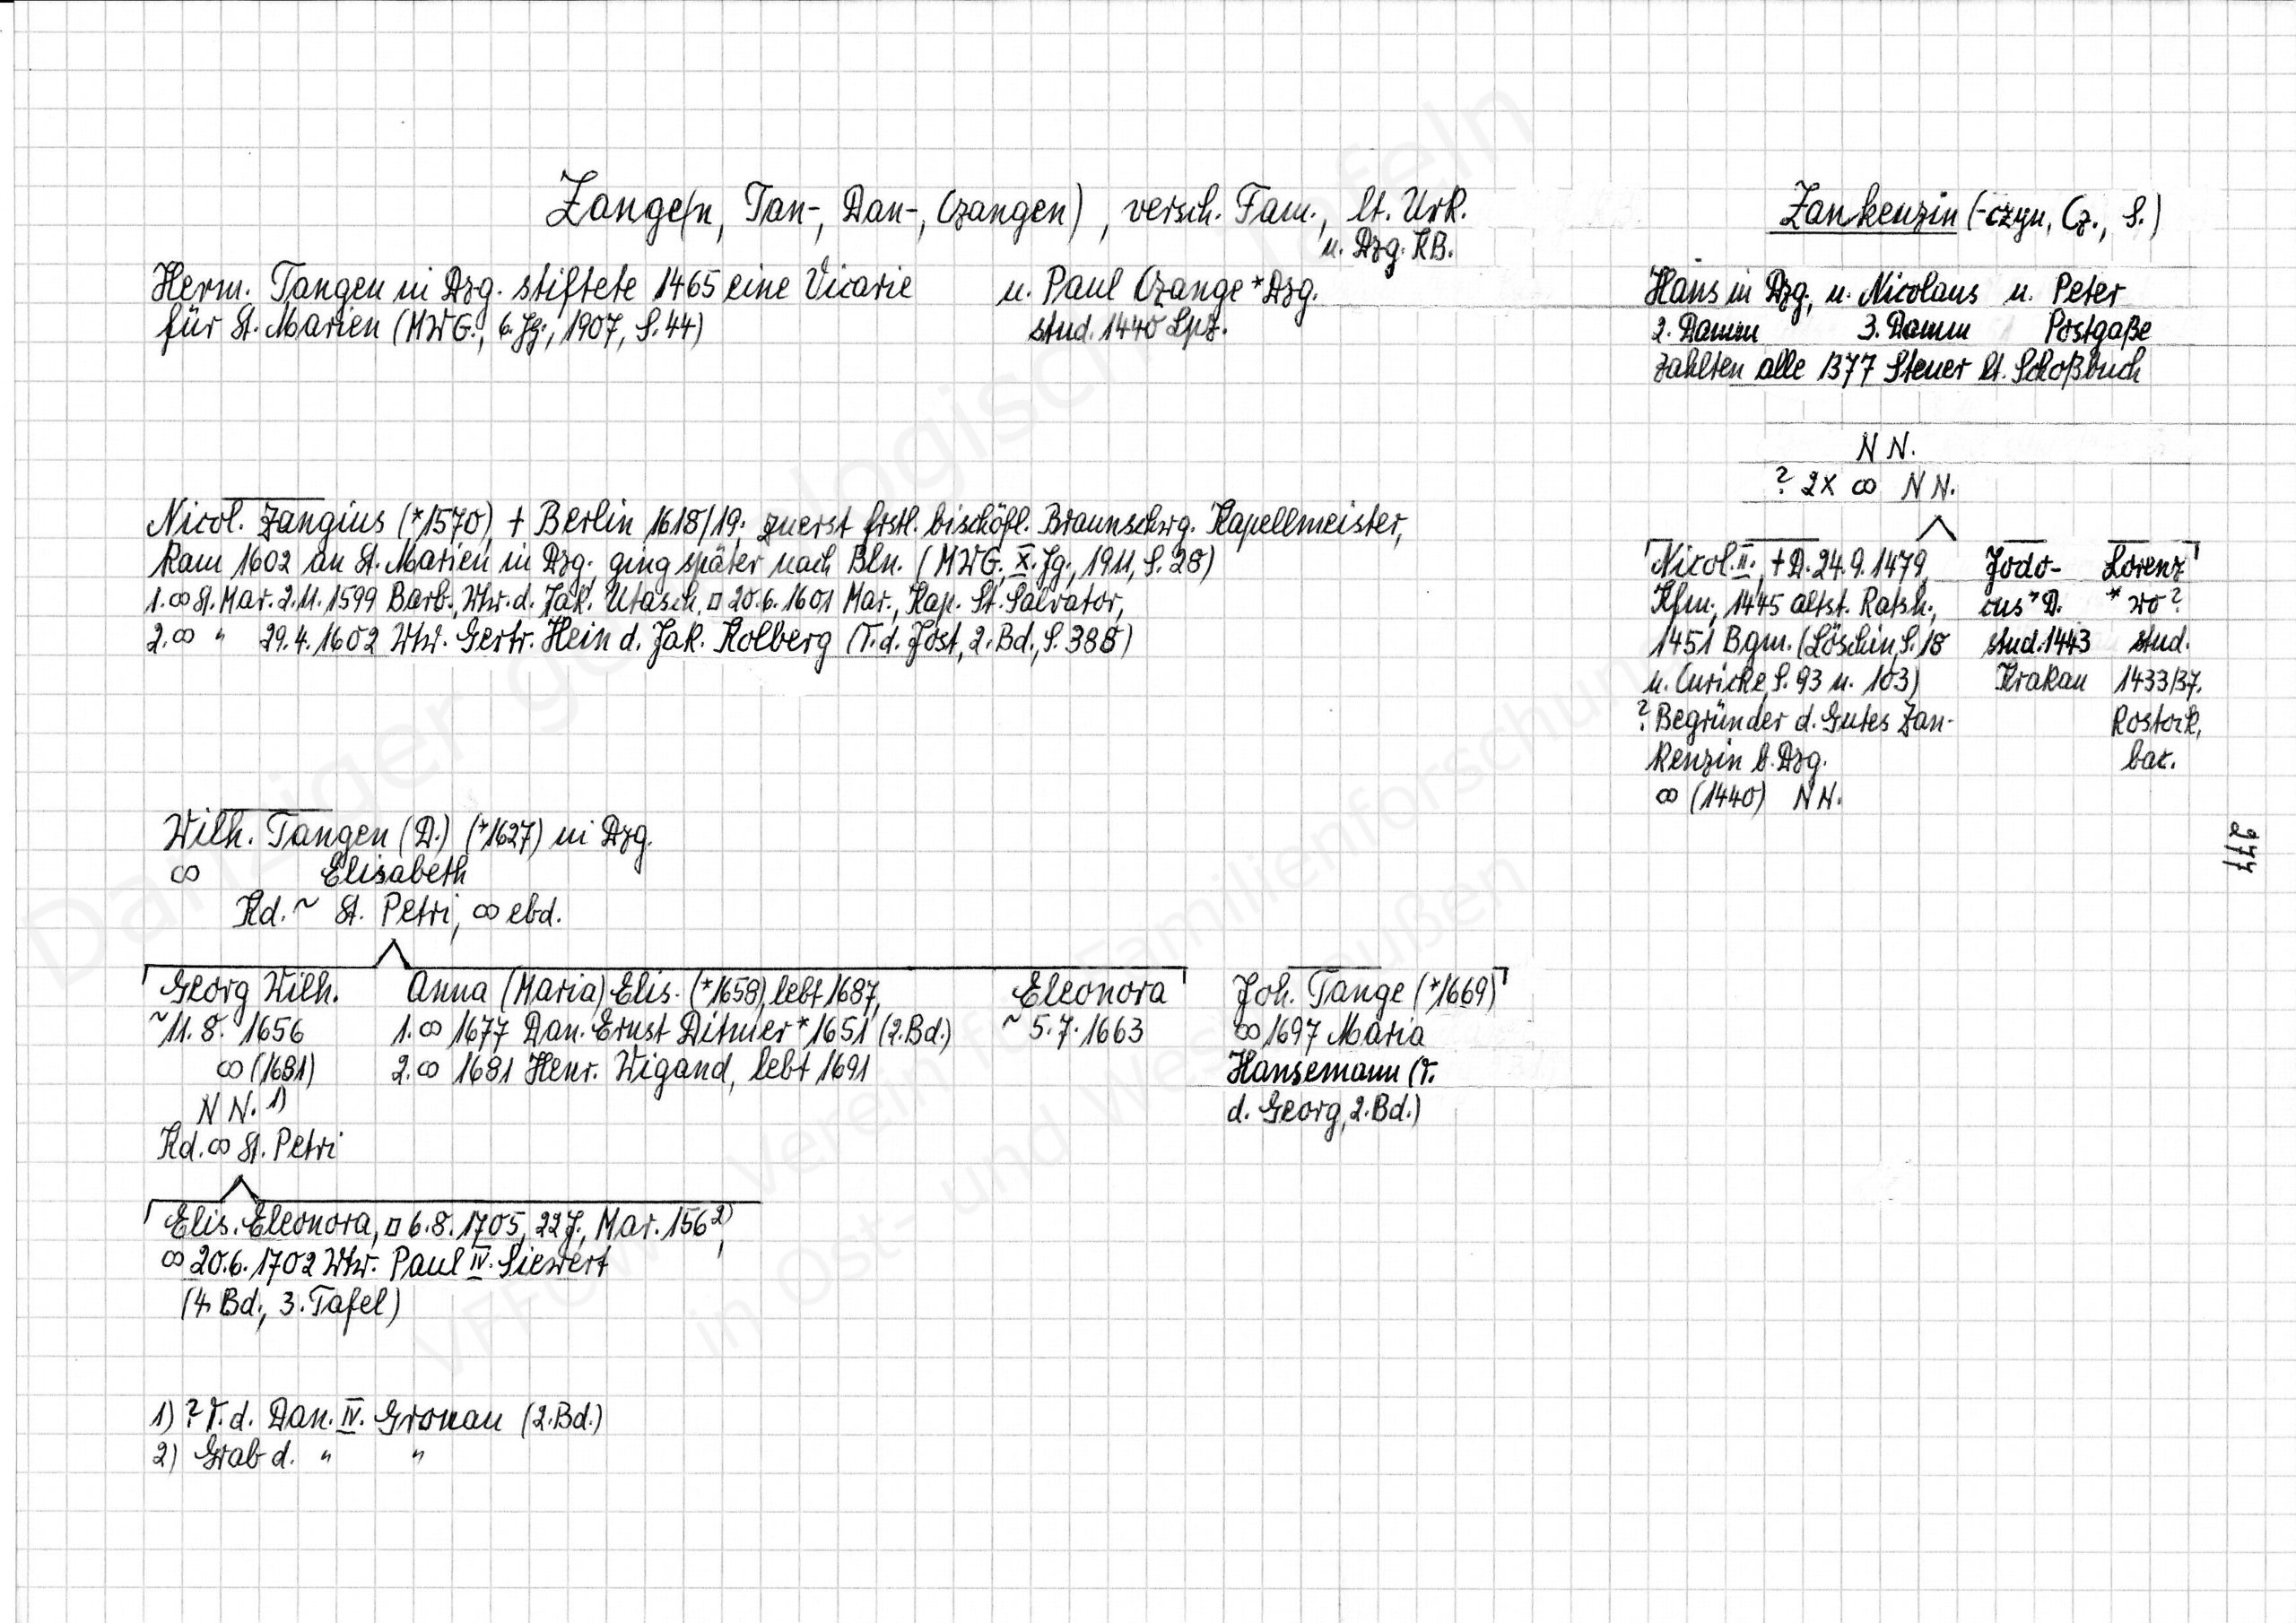 Zange(n, Tan-, Dan-, Czangen), versch. Fam., lt. Urk.
u. Dzg. KB.
Herm. Tangen in Dzg. stiftete 1465 eine Vicarie
für St. Marien (MWG., 6. Jg., 1907, S. 44)
u. Paul Czange *Dzg.
stud. 1440 Lpz.
Nicol. Zangius (*1570), + Berlin 1618/19; zuerst frstl. bischöfl. Braunschwg. Kapellmeister,
kam 1602 an St. Marien in Dzg., ging später nach Bln. (MWG, X. Jg., 1911, S. 28)
1. ∞ St. Mar. 2.11.1599 Barb., Wtw. d. Jak. Utasch, ▫ 20.6.1601 Mar., Kap. St. Salvator,
2. ∞ " 29.4.1602 Wtw. Gertr. Hein d. Jak. Kolberg (T. d. Jost, 2. Bd., S. 388)
Wilh. Tangen (D.) (*1627) in Dzg.
∞ Elisabeth
Kd. ~ St. Petri, ∞ ebd.
Georg Wilh.
~ 11. 8. 1656
∞ (1681)
N N. 1)
Kd. ∞ St. Petri
Anna (Maria) Elis. (*1658), lebt 1687,
1. ∞ 1677 Dan. Ernst Ditmer *1651 (2. Bd.)
2. ∞ 1681 Henr. Wigand, lebt 1691
Eleonora
~ 5. 7. 1663
Joh. Tange (*1669)
∞ 1697 Maria
Hansemann (T.
d. Georg, 2. Bd.)
Elis. Eleonora, ▫ 6. 8. 1705, 22 J., Mar. 156 2),
∞ 20.6.1702 Wtw. Paul IV. Siewert
(4. Bd., 3. Tafel)
1) ? T. d. Dan. IV. Gronau (2. Bd.)
2) Grab d. " "
Zankenzin (-czyn, Cz., S.)
Hans in Dzg., u. Nicolaus u. Peter
2. Damm 3. Damm Postgaße
zahlten alle 1377 Steuer lt. Schoßbuch
N N.
? 2x ∞ N N.
Nicol. II., + D. 24.9.1479,
Kfm., 1445 altst. Ratsh.,
1451 Bgm. (Löschin, S. 18
u. Curicke, S. 93 u. 103)
? Begründer d. Gutes Zan-
kenzin b. Dzg.
∞ (1440) N N.
Jodo-
cus *D.
stud. 1443
Krakau
Lorenz
* wo?
stud.
1433/37.
Rostock,
bac.
277
Danziger genealogische Tafeln
Verein für Familienforschung
in Ost- und Westpreußen